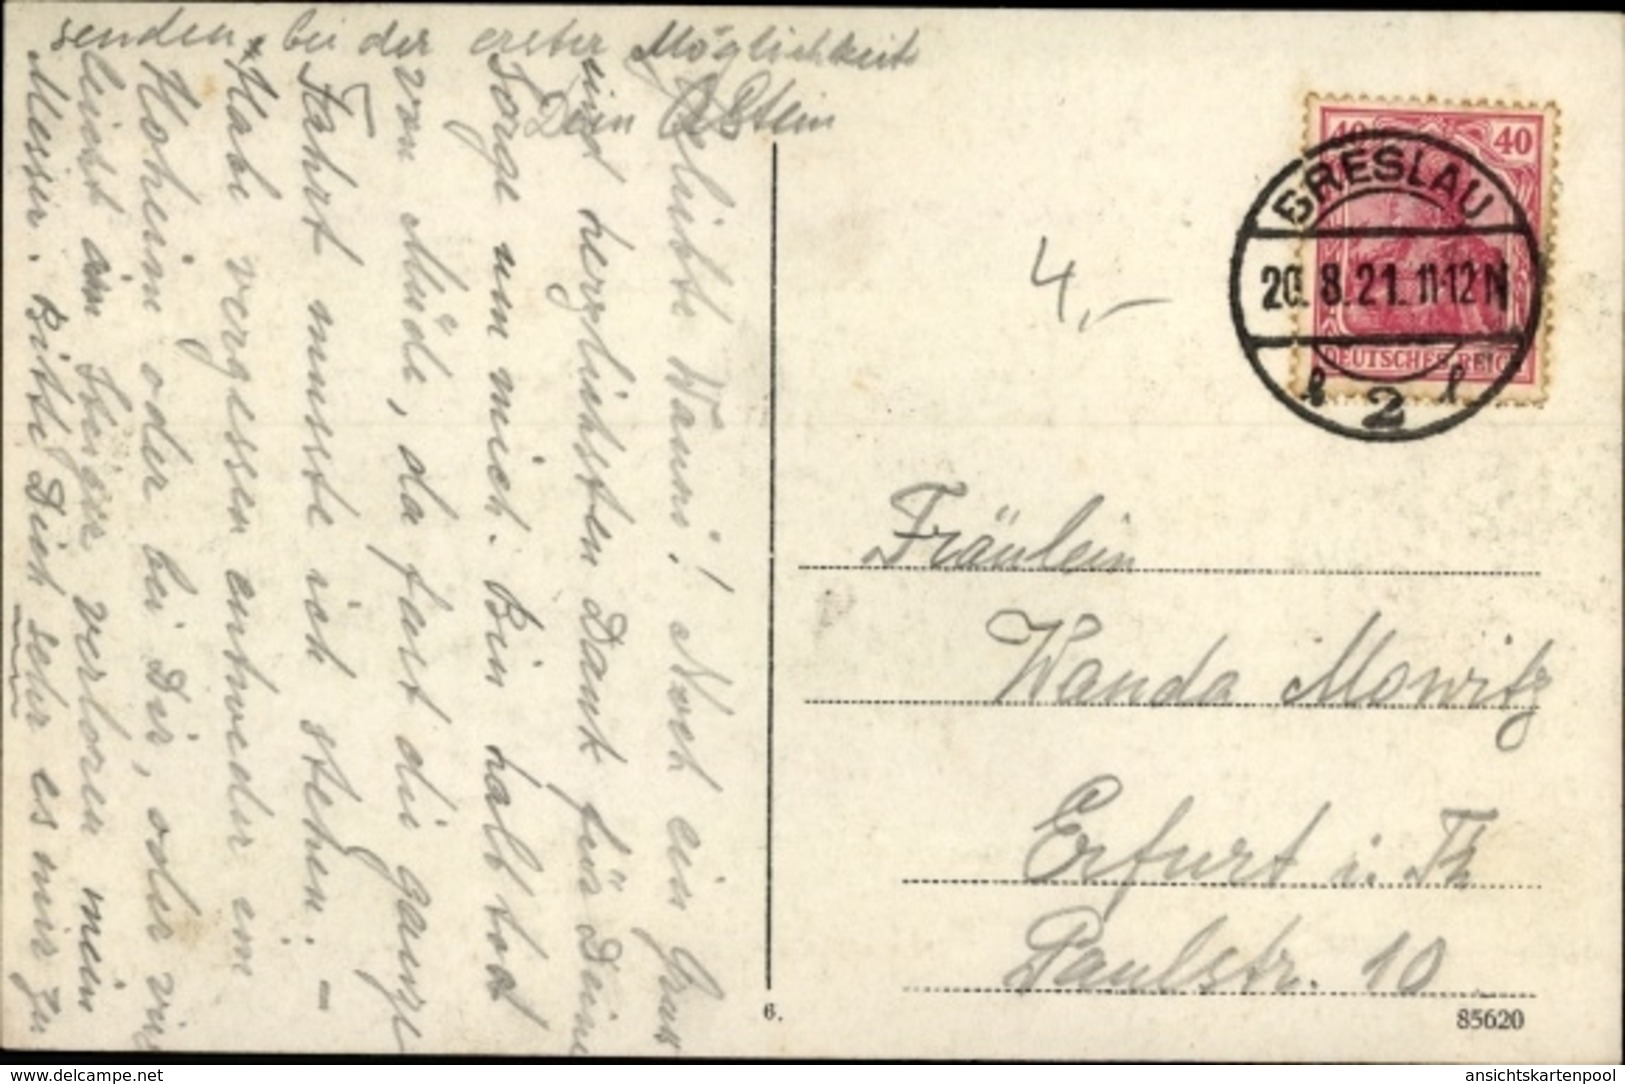 Geliebte Wanni! Noch ein Gruss
und herzlichsten Dank für Deine
Sorge um mich. Bin halb tod
von Müde, da fast die ganze
Fahrt musste ich stehen. –
Habe vergessen entweder im
Koheim oder bei Dir, oder vie
leicht im verloren mein
Messer. Bitte Dich sehr es mir zu
senden, bei der erster Möglichkeit
Dein
40 40
DEUTSCHES REICH
BRESLAU
20.8.21.11-12N
2
4,–
Fräulein
Wanda Mowitz
Erfurt i. Th
Paulstr. 10
6.
85620
delcampe.net
ansichtskartenpool